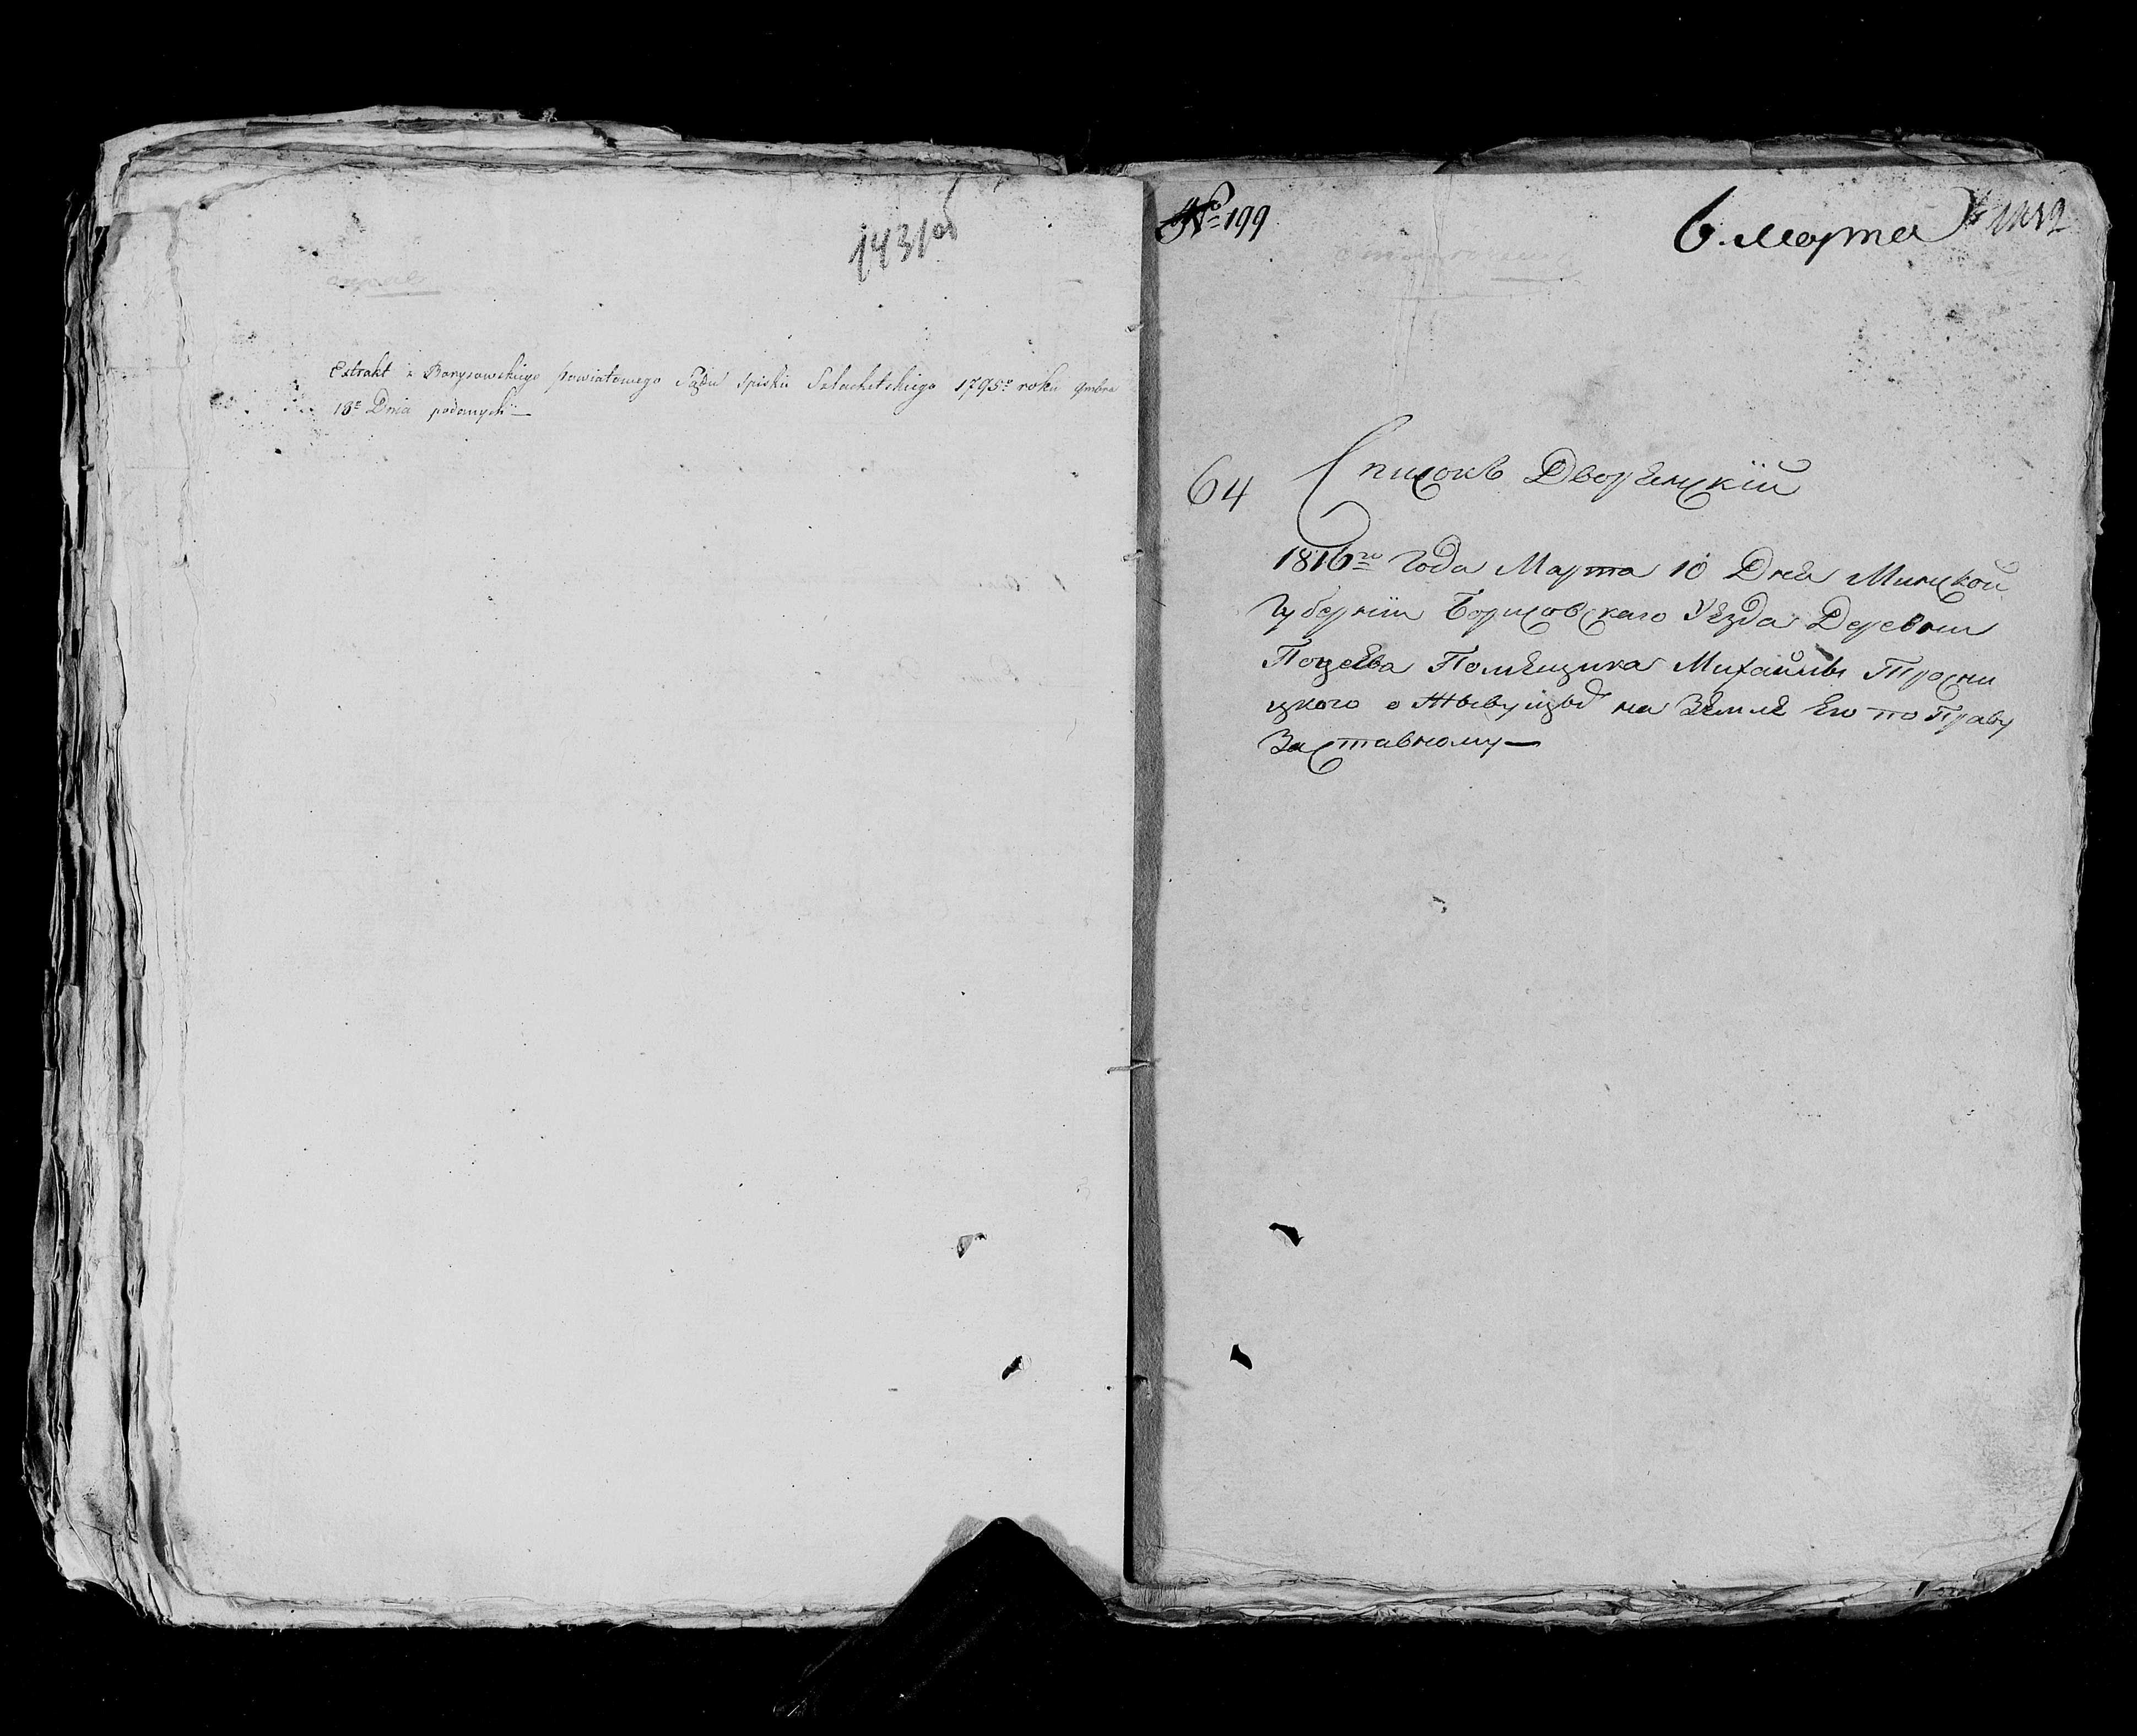 1431об
Extrakt z Borysowskiego Powiatowego Sądu Spisku Szlachetskiego 1795º roku
18º Dnia podanych —
№ 199
6 марта
64 Списокъ Дворянскій
1816го Года Марта 10 Дня Минской
Губерніи Борисовскаго Уезда Деревни
Помѣщика Михайлы
цкого о Жывущыъ на Земле Его по Праву
Заставному —